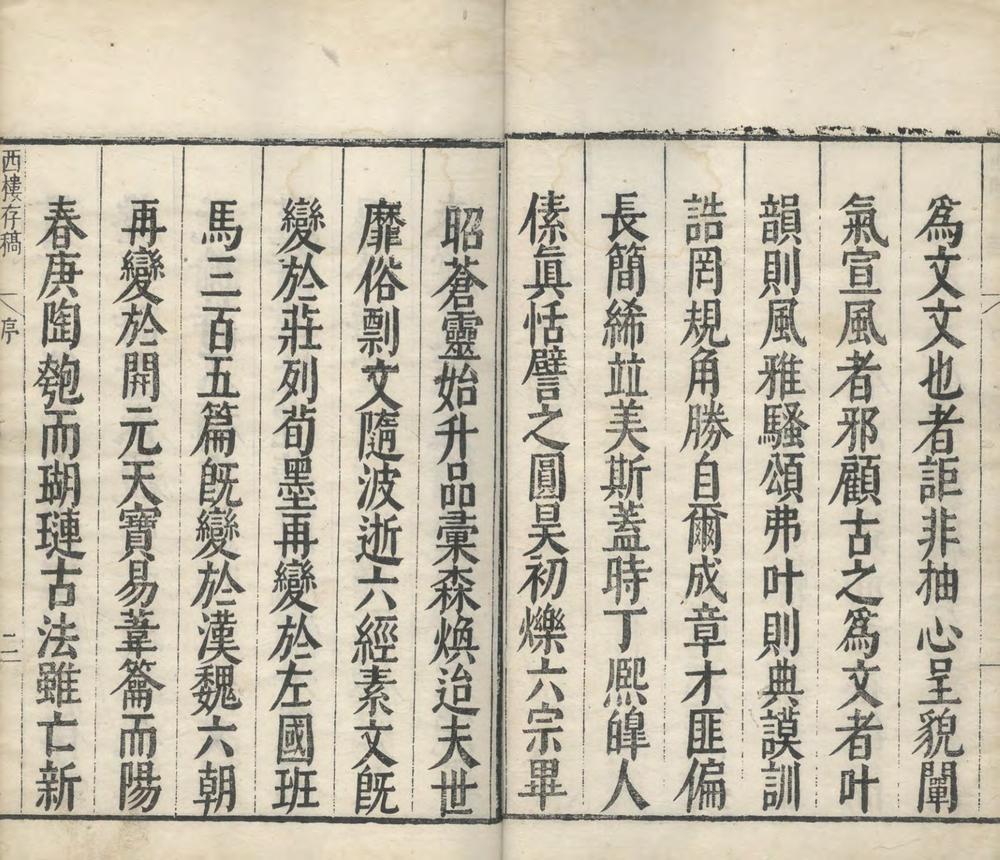 爲文文也者詎非抽心呈貌闡
氣宣風者邪顧古之爲文者叶
韻則風雅騷頌弗叶則典謨訓
誥罔規角勝自爾成章才匪偏
長簡絺竝美斯蓋時丁熈皥人
傃眞恬譬之圓昊初爍六宗畢
昭蒼靈始升品彙森煥迨夫世
靡俗剽文隨波逝六經素文旣
變於莊列荀墨再變於左國班
馬三百五篇旣變於漢魏六朝
再變於開元天寶易葦籥而陽
春庚陶匏而瑚璉古法雖亡新
西樓存稿 序 二